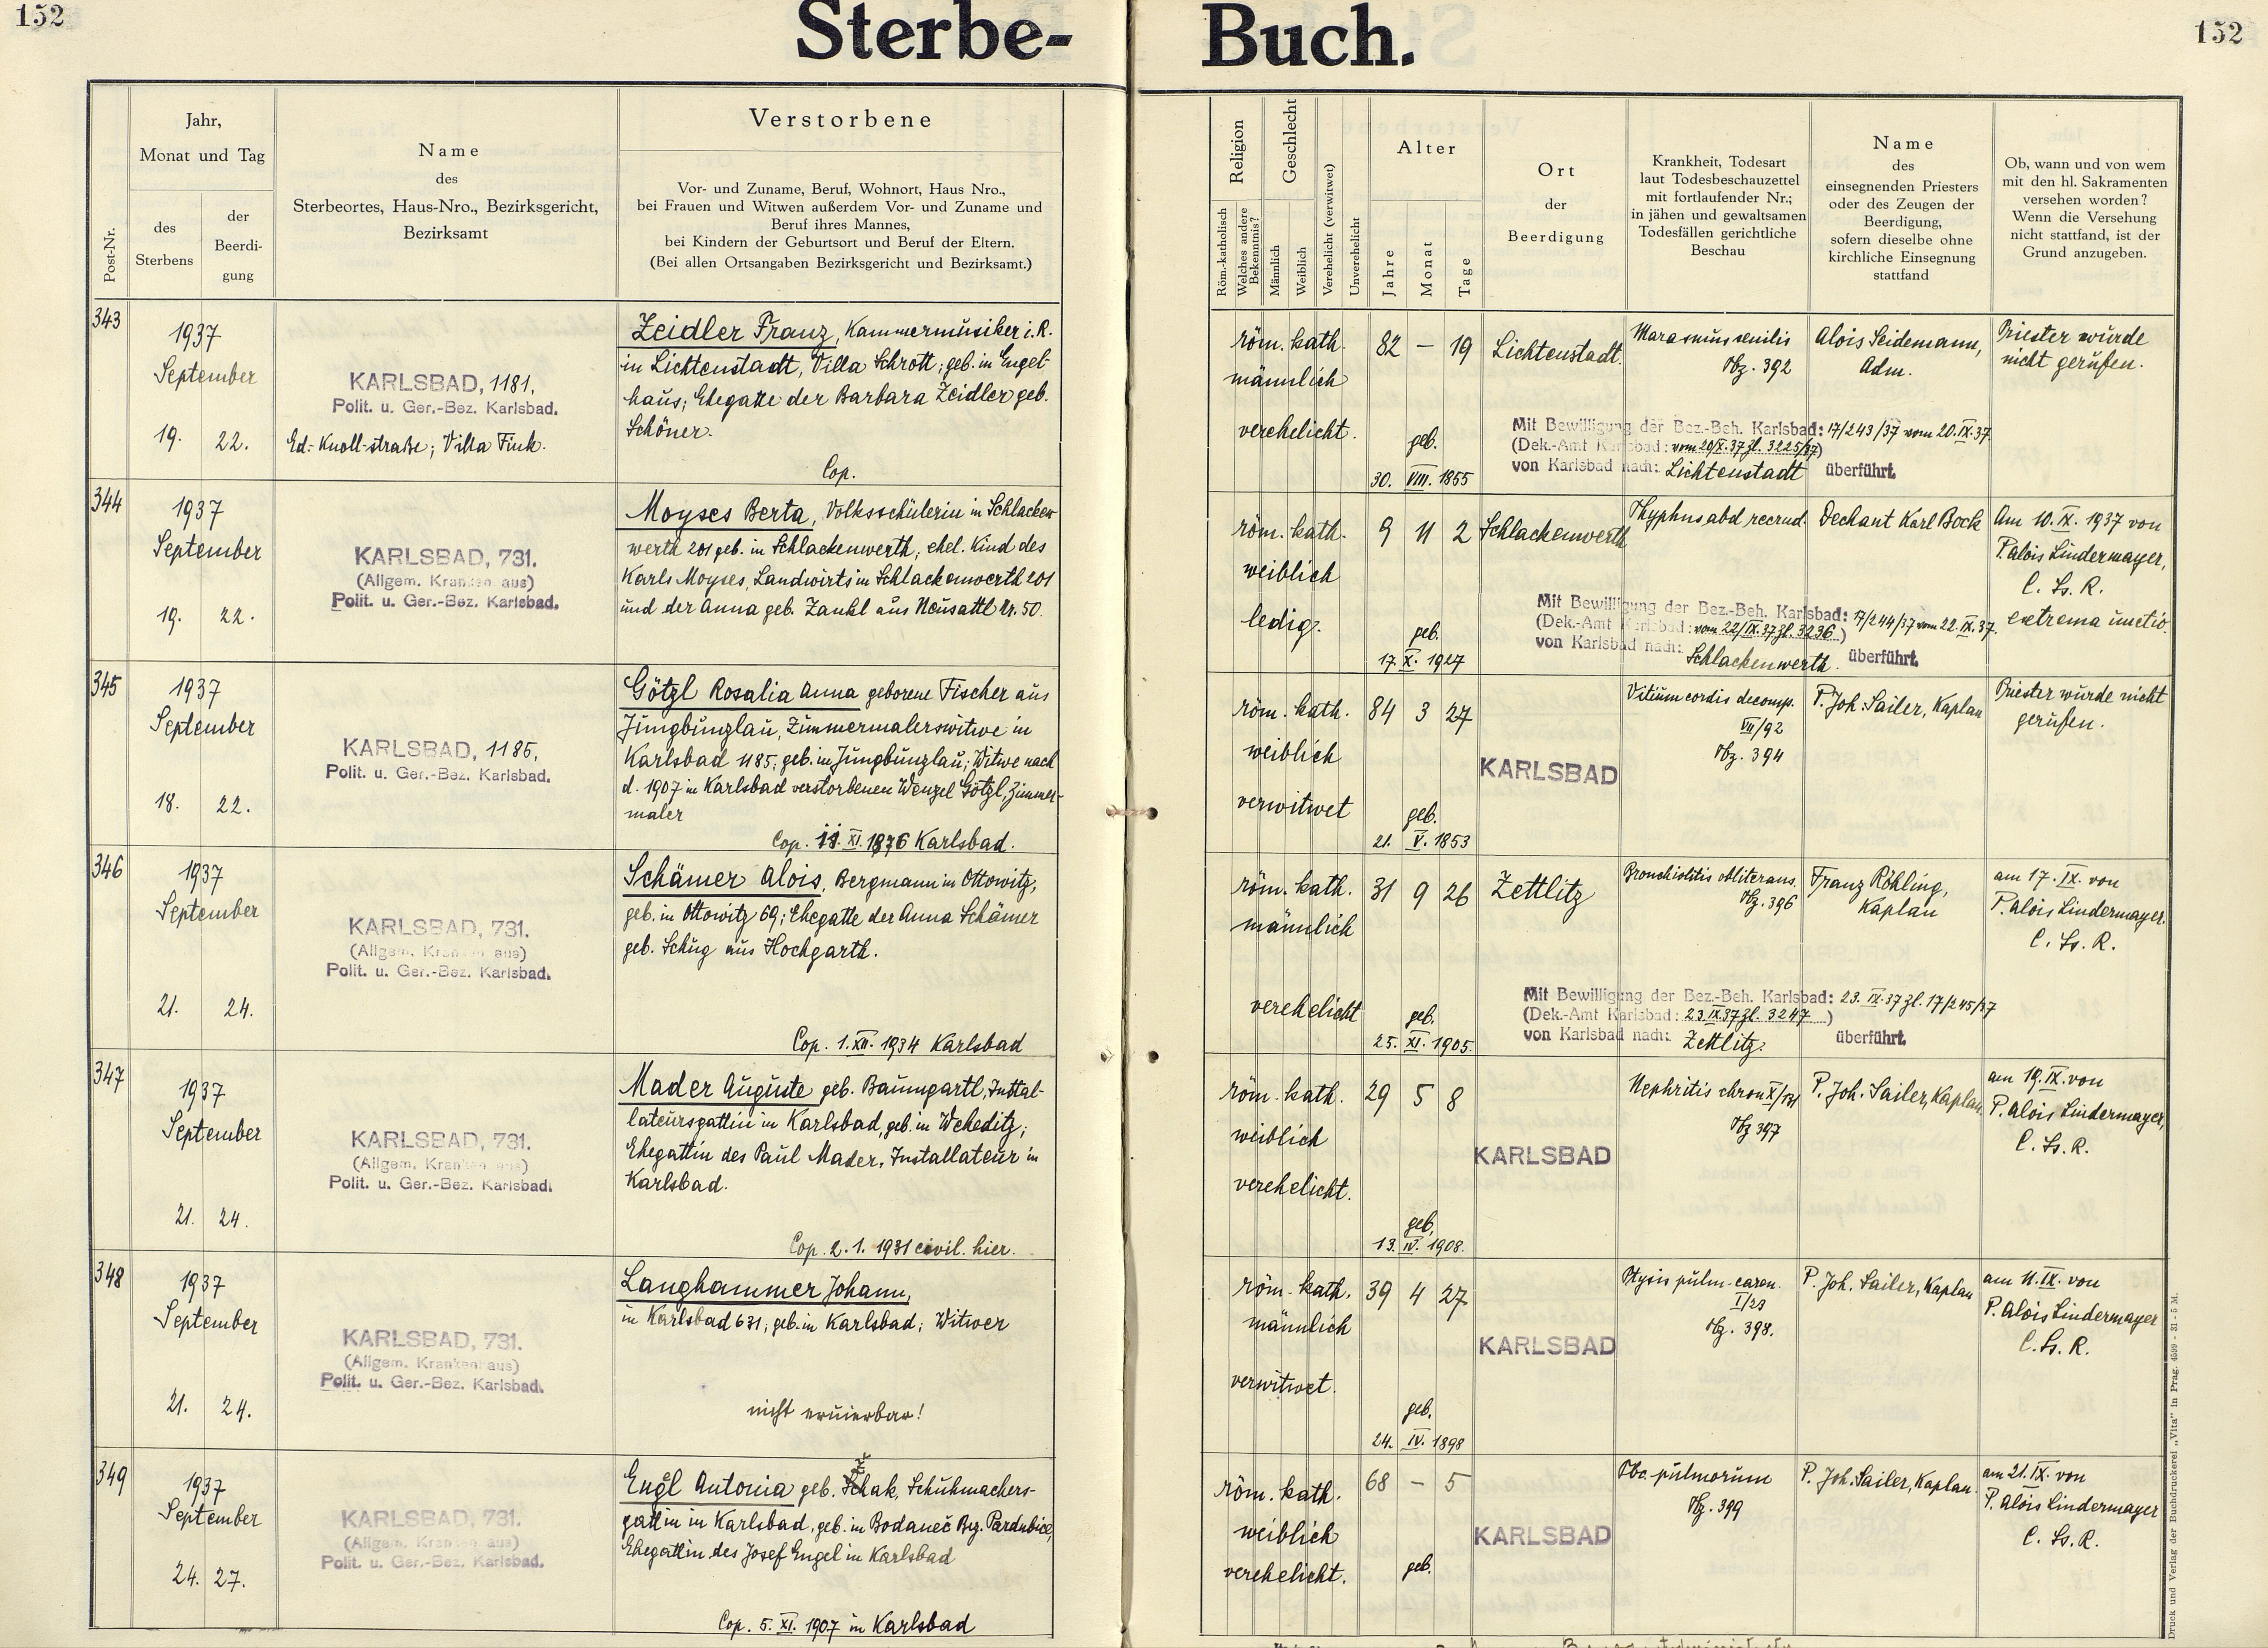 152
Sterbe-
Buch.
152
Post-Nr.
Jahr,
Monat und Tag
des
Sterbens
der
Beerdi-
gung
Name
des
Sterbeortes, Haus-Nro., Bezirksgericht,
Bezirksamt
Verstorbene
Vor- und Zuname, Beruf, Wohnort, Haus Nro.,
bei Frauen und Witwen außerdem Vor- und Zuname und
Beruf ihres Mannes,
bei Kindern der Geburtsort und Beruf der Eltern.
(Bei allen Ortsangaben Bezirksgericht und Bezirksamt.)
Religion
Röm.-katholisch
Welches andere
Bekenntnis?
Geschlecht
Männlich
Weiblich
Verehelicht (verwitwet)
Unverehelicht
Alter
Jahre
Monat
Tage
Ort
der
Beerdigung
Krankheit, Todesart
laut Todesbeschauzettel
mit fortlaufender Nr.;
in jähen und gewaltsamen
Todesfällen gerichtliche
Beschau
Name
des
einsegnenden Priesters
oder des Zeugen der
Beerdigung,
sofern dieselbe ohne
kirchliche Einsegnung
stattfand
Ob, wann und von wem
mit den hl. Sakramenten
versehen worden?
Wenn die Versehung
nicht stattfand, ist der
Grund anzugeben.
343
1937
September
19. 22.
KARLSBAD, 1181.
Polit. u. Ger.-Bez. Karlsbad.
Ed. Knoll-straße; Villa Fink.
Zeidler Franz, Kammermusiker i. R.
in Lichtenstadt, Villa Schrott; geb. in Engel-
haus; Ehegatte der Barbara Zeidler geb.
Schöner.
Cop.
röm. kath.
männlich
verehelicht.
82 — 19
geb.
30. VIII. 1855
Lichtenstadt.
Marasmus senilis
Hz. 392
Alois Seidemann,
Adm.
Priester wurde
nicht gerufen.
Mit Bewilligung der Bez.-Beh. Karlsbad: 17/243/37 vom 20.IX.37.
(Dek.-Amt Karlsbad: vom 20/IX.37 zl. 3225/37)
von Karlsbad nach: Lichtenstadt überführt.
344
1937
September
19. 22.
KARLSBAD, 731.
(Allgem. Krankenhaus)
Polit. u. Ger.-Bez. Karlsbad.
Moyses Berta, Volksschülerin in Schlacken-
werth 201 geb. in Schlackenwerth, ehel. Kind des
Karls Moyses, Landwirts in Schlackenwerth 201
und der Anna geb. Zankl aus Neusattl Nr. 50.
röm. kath.
weiblich
ledig.
9 11 2
geb.
17. X. 1927
Schlackenwerth
Thyphus abd recrud.
Dechant Karl Bock
Am 10. IX. 1937 von
P. Alois Lindermayer,
C. Ss. R.
extrema unctio.
Mit Bewilligung der Bez.-Beh. Karlsbad: 17/244/37 vom 22.IX.37.
(Dek.-Amt Karlsbad: vom 22/IX.37 zl. 3236.)
von Karlsbad nach: Schlackenwerth. überführt.
345
1937
September
18. 22.
KARLSBAD, 1185.
Polit. u. Ger.-Bez. Karlsbad.
Götzl Rosalia Anna geborene Fischer aus
Jungbunzlau, Zimmermalerswitwe in
Karlsbad 1185; geb. in Jungbunzlau; Witwe nach
d. 1907 in Karlsbad verstorbenen Wenzel Götzl, Zimmer-
maler
Cop. 11. XI. 1876 Karlsbad.
röm. kath.
weiblich
verwitwet
84 3 27
geb.
21. V. 1853
KARLSBAD
Vitium cordis decomp.
VII/92
Hz. 394
P. Joh. Sailer, Kaplan
Priester wurde nicht
gerufen.
346
1937
September
21. 24.
KARLSBAD, 731.
(Allgem. Krankenhaus)
Polit. u. Ger.-Bez. Karlsbad.
Schämer Alois, Bergmann in Ottowitz,
geb. in Ottowitz 69; Ehegatte der Anna Schämer
geb. Schug aus Hochgarth.
Cop. 1. XII. 1934 Karlsbad
röm. kath.
männlich
verehelicht
31 9 26
geb.
25. XI. 1905.
Zettlitz
Bronchiolitis obliterans.
Hz. 396
Franz Röhling,
Kaplan
am 17. IX. von
P. Alois Lindermayer.
C. Ss. R.
Mit Bewilligung der Bez.-Beh. Karlsbad: 23. IX.37 zl. 17/245/37
(Dek.-Amt Karlsbad: 23.IX.37 zl. 3247)
von Karlsbad nach: Zettlitz. überführt.
347
1937
September
21. 24.
KARLSBAD, 731.
(Allgem. Krankenhaus)
Polit. u. Ger.-Bez. Karlsbad.
Mader Auguste geb. Baumgartl, Instal-
lateursgattin in Karlsbad, geb. in Weheditz;
Ehegattin des Paul Mader, Installateur in
Karlsbad.
Cop. 2. 1. 1931 civil. hier.
röm. kath.
weiblich
verehelicht.
29 5 8
geb.
13. IV. 1908.
KARLSBAD
Nephritis chron
Hz 397
P. Joh. Sailer, Kaplan.
am 19. IX. von
P. Alois Lindermayer,
C. Ss. R.
348
1937
September
21. 24.
KARLSBAD, 731.
(Allgem. Krankenhaus)
Polit. u. Ger.-Bez. Karlsbad.
Langhammer Johann,
in Karlsbad 631; geb. in Karlsbad; Witwer
nicht eruierbar!
röm. kath.
männlich
verwitwet.
39 4 27
geb.
24. IV. 1898
KARLSBAD
I/23
Hz. 398.
P. Joh. Sailer, Kaplan
am 11. IX. von
P. Alois Lindermayer
C. Ss. R.
349
1937
September
24. 27.
KARLSBAD, 731.
(Allgem. Krankenhaus)
Polit. u. Ger.-Bez. Karlsbad.
Engl Antonia geb. Schuhmachers-
gattin in Karlsbad, geb. in Bodaneč Bez. Pardubice,
Ehegattin des Josef Engel in Karlsbad
Cop. 5. XI. 1907 in Karlsbad
röm. kath.
weiblich
verehelicht.
68 — 5
geb.
KARLSBAD
Tbc. pulmorum
Hz. 399
P. Joh. Sailer, Kaplan.
am 21. IX. von
P. Alois Lindermayer
C. Ss. R.
Druck und Verlag der Buchdruckerei „Vita" in Prag. 4599 - 31 - 5 M.